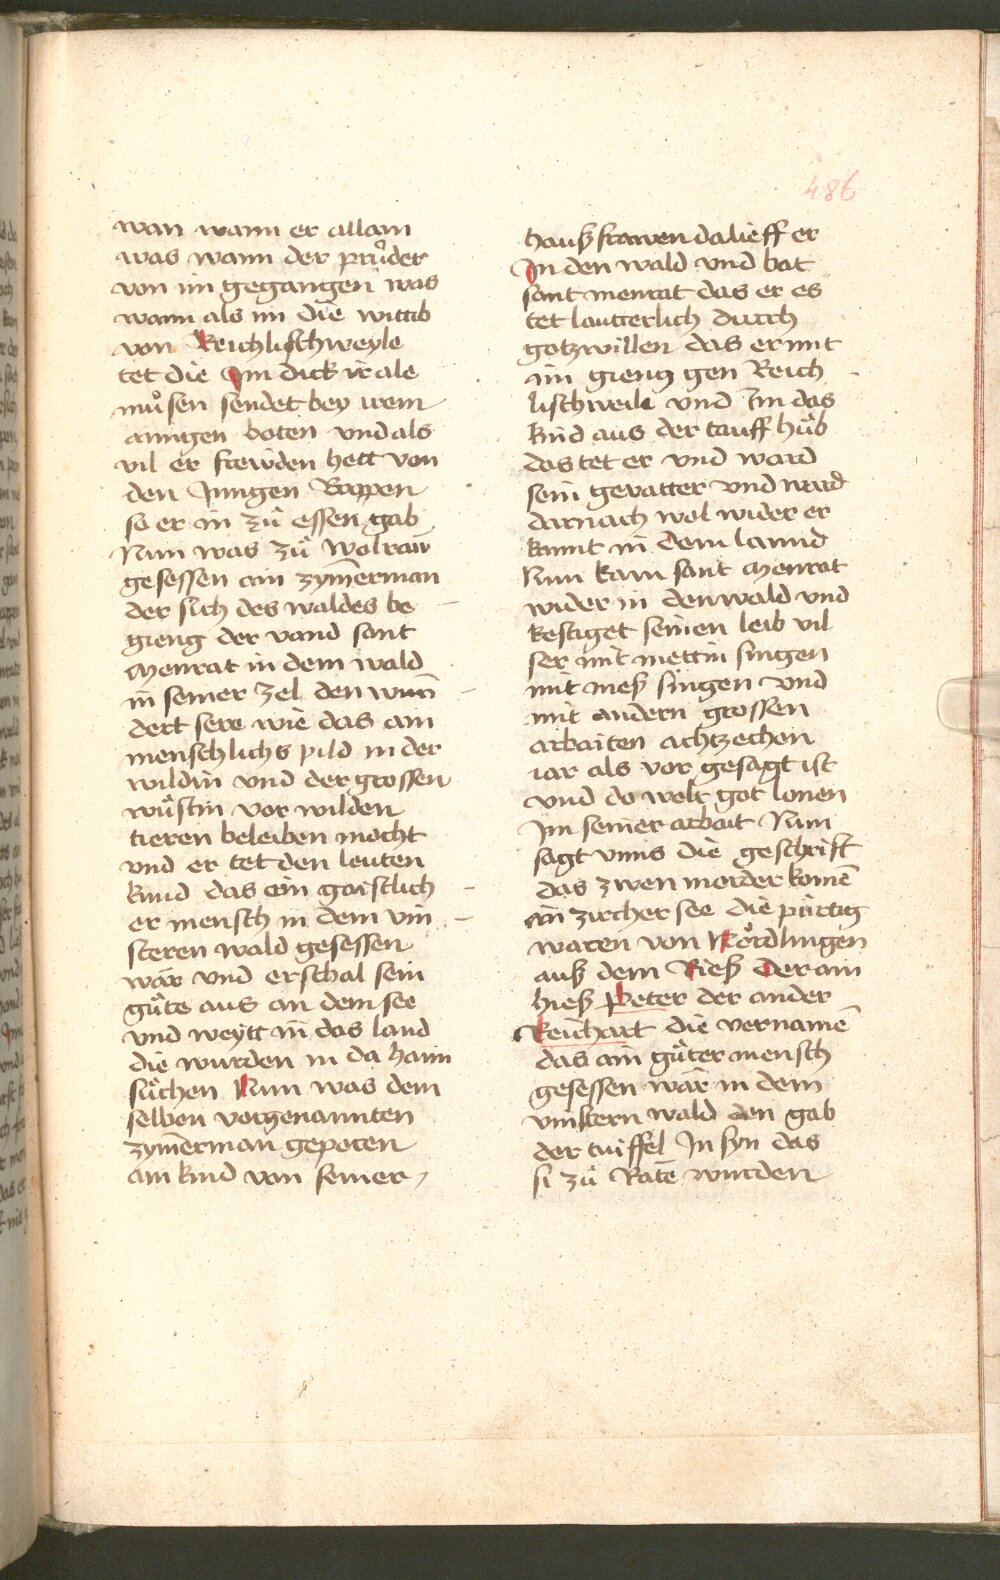 486
wan wann er allain
was wann der průder
von im gegangen was
wann als im die wittib
von Reichlischweyle
tet die Im dick ir ale
můsen sendet bey irem
aingen boten vnd als
vil er frewden hett von
den Jungen Rappen
so er in zů essen gab
Nun was zů Wolraw
gesessen ain zym̄erman
der sich des waldes be
gieng der vand sant
Menrat in dem wald
in seiner zel den wun̄
dert sere wie das ain
menschlichs pild in der
wildin vnd der grossen
wůstin vor wilden
tieren beleiben mocht
vnd er tet den leuten
kund das ein gaistlich
er mensch in dem vin
steren wald gesessen
wär vnd erschal sein
gůte aus an dem see
vnd weytt in das land
die wurden in da haim
sůchen Nun was dem
selben vorgenannten
zym̄erman geporen
ain kind von seiner
haußfrawen da lieff er
In den wald vnd bat
sant menrat das er es
tet lautterlich durch
gotzwillen das er mit
im gieng gen Reich
lischweile vnd Im das
kind aus der tauff hůb
das tet er vnd ward
sein gevatter vnd ward
darnach wol wider er
kannt in dem lannd
Nun kam sant Menrat
wider in den wald vnd
kestiget seinen leib vil
ser mit mettin singen
mit meß singen vnd
mit andern grossen
arbaiten achtzechen
iar als vor gesagt ist
vnd do wolt got lonen
Im seiner arbait Nun
sagt vnns die geschrift
das zwen morder komē
an zircher see die pürtig
waren von Nördlingen
auß dem Rieß Der ain
hieß Peter der ander
Reichart die vernamē
das ain gůter mensch
gesessen wär in dem
vinstern wald den gab
der tuiffel In syn das
si zů Rate wurden